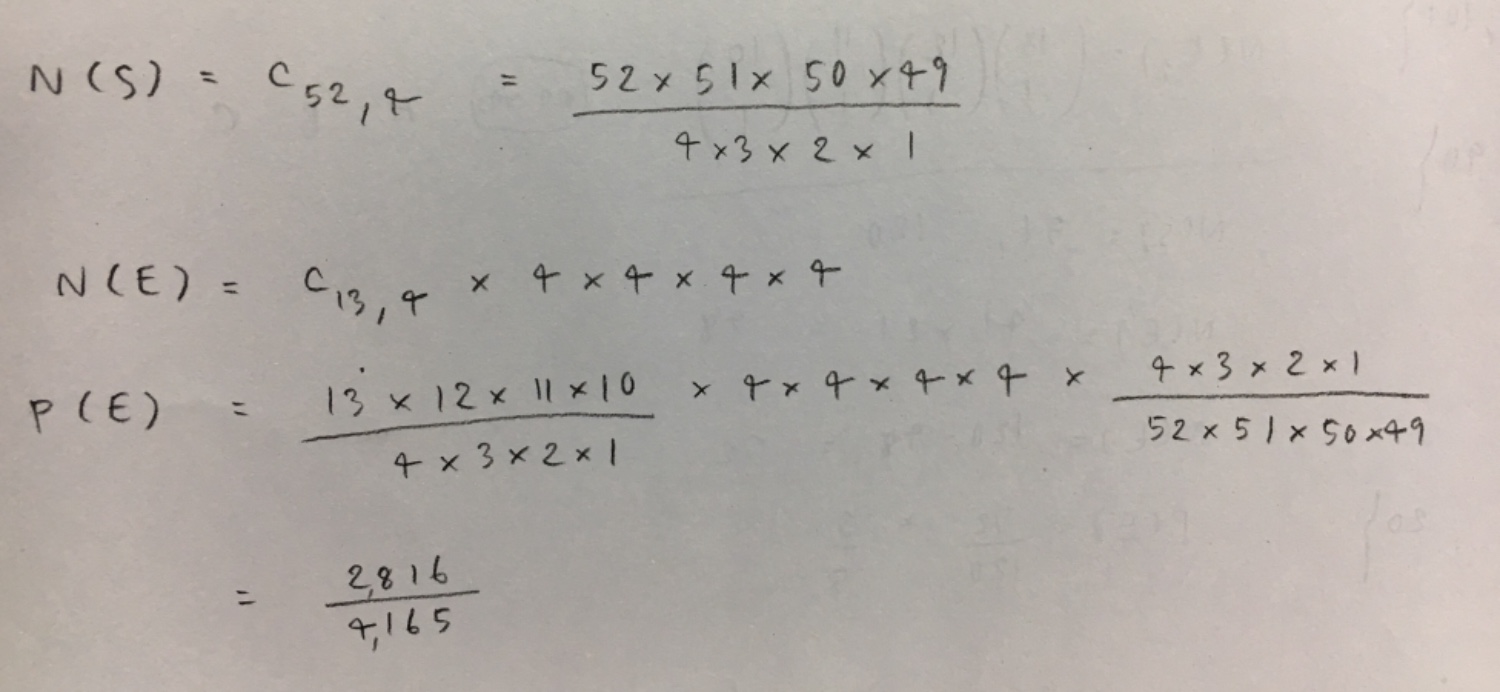 N(S) = C₅₂,₄ = (52 × 51 × 50 × 49) / (4 × 3 × 2 × 1)
N(E) = C₁₃,₄ × 4 × 4 × 4 × 4
P(E) = (13 × 12 × 11 × 10) / (4 × 3 × 2 × 1) × 4 × 4 × 4 × 4 × (4 × 3 × 2 × 1) / (52 × 51 × 50 × 49)
= 2,816 / 4,165